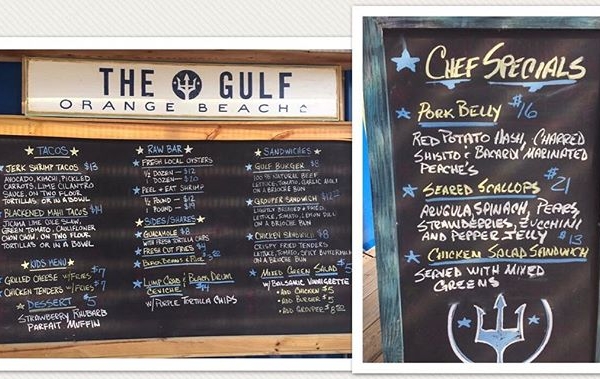 THE GULF
ORANGE BEACH
TACOS
JERK SHRIMP TACOS $13
AVOCADO, KIMCHI, PICKLED
CARROTS, LIME CILANTRO
SAUCE, ON TWO FLOUR
TORTILLAS OR IN A BOWL
BLACKENED MAHI TACOS $14
JICAMA LIME COLE SLAW,
GREEN TOMATO, CAULIFLOWER
CHOW CHOW, ON TWO FLOUR
TORTILLAS OR IN A BOWL
KIDS MENU
GRILLED CHEESE W/FRIES $7
CHICKEN TENDERS W/FRIES $7
DESSERT $5
STRAWBERRY RHUBARB
PARFAIT MUFFIN
RAW BAR
FRESH LOCAL OYSTERS
1/2 DOZEN $12
DOZEN $20
PEEL & EAT SHRIMP
1/2 POUND $12
POUND
SIDES/SHARES
GUACAMOLE $8
WITH FRESH TORTILLA CHIPS
FRESH CUT FRIES $4
BLACK BEANS & RICE
LUMP CRAB & BLACK DRUM
CEVICHE $14
W/PURPLE TORTILLA CHIPS
SANDWICHES
GULF BURGER $8
100% NATURAL BEEF
LETTUCE, TOMATO, GARLIC AIOLI
ON A BRIOCHE BUN
GROUPER SANDWICH
LIGHTLY BREADED & FRIED
LETTUCE, TOMATO, LEMON DILL
ON A BRIOCHE BUN
CHICKEN SANDWICH $8
CRISPY FRIED TENDERS
LETTUCE, TOMATO, SPICY BUTTERMILK
ON A BRIOCHE BUN
MIXED GREEN SALAD $5
W/ BALSAMIC VINAIGRETTE
ADD CHICKEN $5
ADD BURGER $5
ADD GROUPER
CHEF SPECIALS
PORK BELLY $16
RED POTATO HASH, CHARRED
SHISITO & BACARDI MARINATED
PEACHE'S
SEARED SCALLOPS $21
ARUGULA, SPINACH, PEARS,
STRAWBERRIES, ZUCCHINI
AND PEPPER JELLY
CHICKEN SALAD SANDWICH $13
SERVED WITH MIXED
GREENS